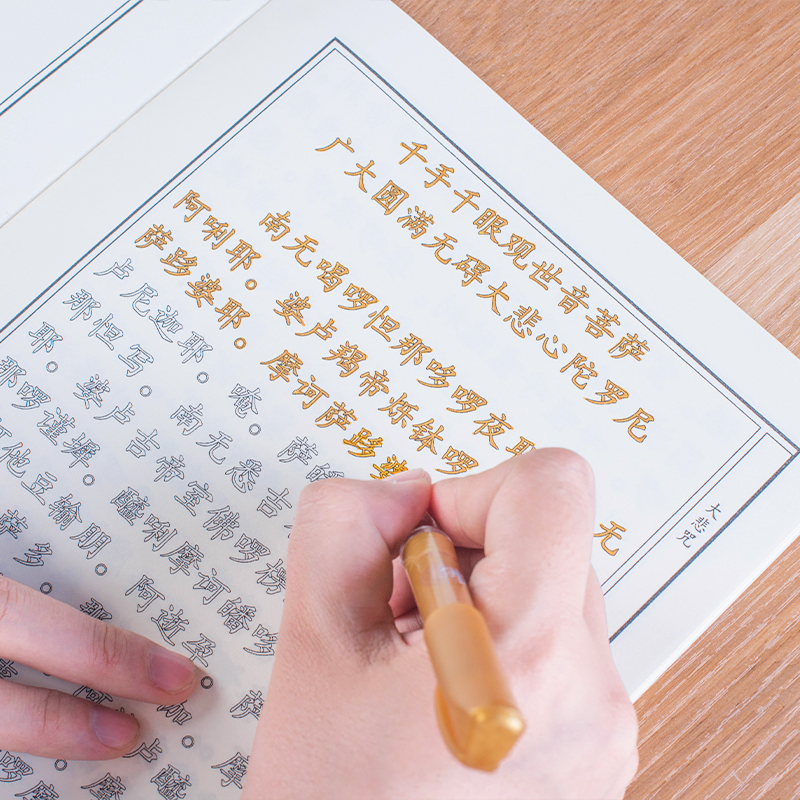 千手千眼观世音菩萨
广大圆满无碍大悲心陀罗尼
南无喝啰怛那哆啰夜耶 无
阿唎耶。婆卢羯帝烁钵啰
萨跢婆耶。摩诃萨跢婆
卢尼迦耶。唵。萨皤
那怛写。南无悉吉
耶。婆卢吉帝室佛啰楞
那啰谨墀。醯唎摩诃皤哆
他豆输朋。阿逝孕。萨
萨多。那
大悲咒